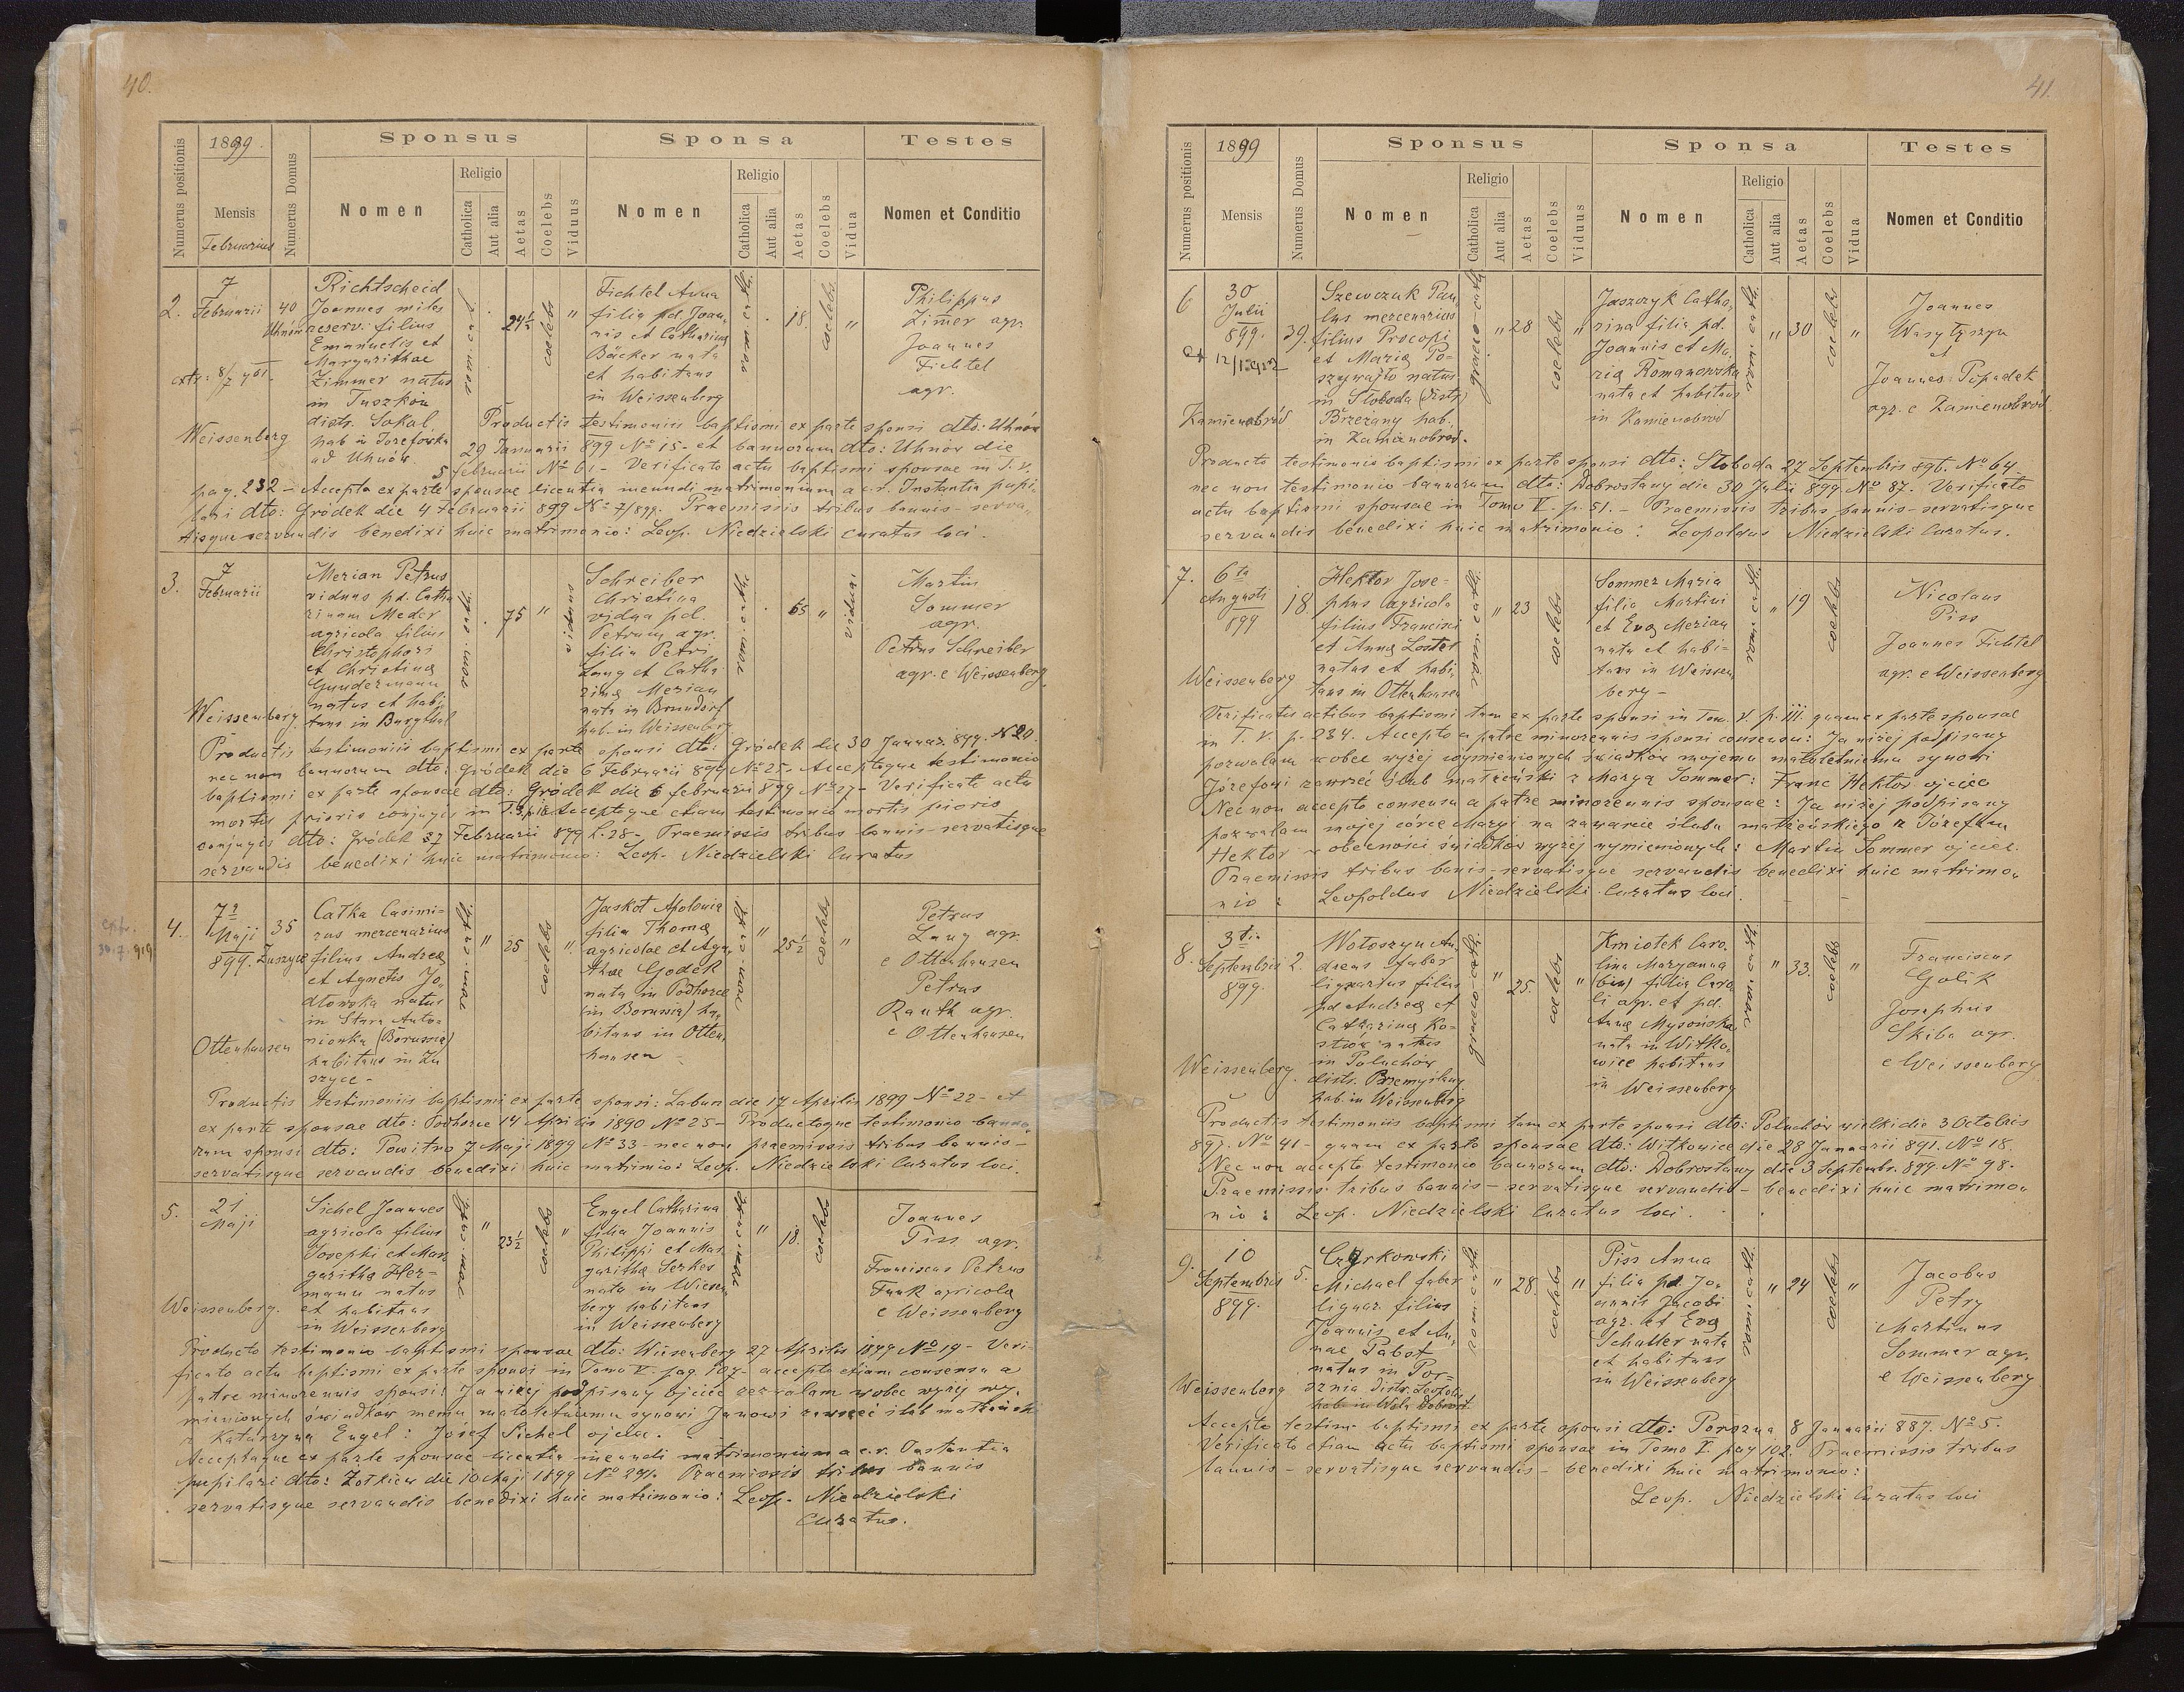 40.
Numerus positionis
1899.
Mensis
Februarius
Numerus Domus
Sponsus
Nomen
Religio
Catholica
Aut alia
Aetas
Coelebs
Viduus
Sponsa
Nomen
Religio
Catholica
Aut alia
Aetas
Coelebs
Vidua
Testes
Nomen et Conditio
2.
7
Februarii
extr: 8/7 901.
Weissenberg
40
Uhnów
Richtscheid
Joannes miles
reserv. filius
Emanuelis et
Margarithae
Zimmer natus
in Tuszków
distr. Sokal
hab in Josefówka
ad Uhnów.
24½
coelebs
"
Fichtel Anna
filia pd. Joan
nis et Catharina
Bäcker nata
et habitans
in Weissenberg
18.
coelebs
"
Philippus
Zimer agr.
Joannes
Fichtel
agr.
Productis testimoniis baptismi ex parte sponsi dto: Uhnów
29 Januarii 899 No 15- et bannorum dto: Uhnów die
5 februarii No 61- Verificato actu baptismi sponsae in T. V.
pag. 232 - Accepta ex parte sponsae licentia ineundi matrimonium a c.r. Instantia pupi-
lari dto: Gródek die 4 Februarii 899 No 7/899. Praemissis tribus bannis-serva-
tisque servandis benedixi huic matrimonio: Leop. Niedzielski curatus loci.
3.
7
Februarii
Weissenberg
Merian Petrus
viduus pd. Catha
rinam Meder
agricola filius
Christophori
et Christina
Gundermann
natus et habi
tans in Burgthal
75
"
viduus
Schreiber
Christina
vidua pd.
Petrum agr.
filia Petri
Lang et Catha
rina Merian
nata in Brundorf
hab. in Weissenberg
65
"
vidua.
Martin
Sommer
agr.
Petrus Schreiber
agr. e Weissenberg
Productis testimoniis baptismi ex parte sponsi dto: Gródek die 30 Januar. 899. N 20.
nec non bannorum dto: Gródek die 6 Februarii 899 No 25- Acceptoque testimonio
baptismi ex parte sponsae dto: Gródek die 6 februarii 899 No 27- Verificato actu
mortis prioris conjugis in Acceptoque etiam testimonio mortis prioris
conjugis dto: Gródek Februarii 899 L. 28- Praemissis tribus bannis-servatisque
servandis benedixi huic matrimonio: Leop. Niedzielski Curatus
extr.
30.7.919
4.
7a
Maji
899.
Ottenhausen
35
Zuszyce
Catka Casimi-
rus mercenarius
filius Andrea
et Agnetis Jo
dłowska natus
in Stara Anto-
niowka (Borussia)
habitans in Zu
szyce-
"
25
coelebs
"
Jaskot Apolonia
filia Thoma
agricolae et Aga
thae Godek
nata in Podhorce
(in Borussia) ha
bitans in Otten
hausen -
"
25½
coelebs
"
Petrus
Lang agr.
e Ottenhausen
Petrus
Rauth agr.
e Ottenhausen
Productis testimoniis baptismi ex parte sponsi: Labun die 17 Aprilis 1899 No 22- et
ex parte sponsae dto: Podhorce 14 Aprilis 1890 No 25- Productoque testimonio banno
rum sponsi dto: Powitno 7 Maji 1899 No 33- nec non praemissis tribus bannis-
servatisque servandis benedixi huic matrimio: Leop. Niedzielski Curatus loci.
5.
21
Maji
Weissenberg.
Sichel Joannes
agricola filius
Josephi et Mar
garitha Her-
mann natus
et habitans
in Weissenberg
"
23½
coelebs
"
Engel Catharina
filia Joannis
Philippi et Mar
garitha Serkes
nata in Wiesen
berg habitans
in Weissenberg
"
18.
coelebs
Joannes
Piss agr.
Franciscus Petrus
Funk agricola
e Weissenberg
Producto testimonio baptismi sponsae dto: Wiesenberg 27 Aprilis 1899 No 19- Veri-
ficato actu baptismi ex parte sponsi in Tomo V. pag. 107- accepto etiam consensu a
patre minorennis sponsi: Ja niżej podpisany ojciec zezwalam wobec wyżej wy-
mienionych świadków memu małoletniemu synowi Janowi zawrzeć ślub małżeński
z Katarzyną Engel: Józef Sichel ojciec.
Acceptaque ex parte sponsae licentia ineundi matrimonium a c.r. Instantia
pupilari dto: Żółkiew die 10 Maji 1899 No 291. Praemissis tribus bannis
servatisque servandis benedixi huic matrimonio: Leop. Niedzielski
Curatus.
41.
Numerus positionis
1899
Mensis
Numerus Domus
Sponsus
Nomen
Religio
Catholica
Aut alia
Aetas
Coelebs
Viduus
Sponsa
Nomen
Religio
Catholica
Aut alia
Aetas
Coelebs
Vidua
Testes
Nomen et Conditio
6
30
Julii
899.
Kamienobród
39.
Szewczuk Pau
lus mercenarius
filius Procopi
et Maria Po-
szywajło natus
in Sloboda (distr)
Brzeżany hab.
in Kamienobrod.
"
28
coelebs
"
Jaszczyk Catha
rina filia pd.
Joannis et Ma
ria Romanowska
nata et habitans
in Kamienobrod
"
30
coelebs
"
Joannes
Wasylyszyn
et
Joannes Popadek
agr. e Kamienobrod
Producto testimonio baptismi ex parte sponsi dto: Sloboda 27 Septembris 896. No 64
nec non testimonio bannorum dto: Dobrostany die 30 Julii 899 No 87. Verificato
actu baptismi sponsae in Tomo V. p. 51. - Praemissis tribus bannis-servatisque
servandis benedixi huic matrimonio: Leopoldus Niedzielski Curatus.
7.
6ta
Augusti
899
Weissenberg
18.
Hektor Jose-
phus agricola
filius Francisci
et Anna Loster
natus et habi
tans in Ottenhausen
"
23
coelebs
Sommer Maria
filia Martini
et Eva Merian
nata et habi-
tans in Weissen
berg-
"
19
coelebs
Nicolaus
Piss
Joannes Fichtel
agr. e Weissenberg
Verificatis actibus baptismi tam ex parte sponsi in Tom. V. p. 111. quam ex parte sponsae
in T. V. p. 234. Accepto a patre minorennis sponsi consensu: Ja niżej podpisany
pozwalam wobec wyżej wymienionych świadków mojemu małoletniemu synowi
Józefowi zawrzeć ślub małżeński z Maryą Sommer: Franc Hektor ojciec
Nec non accepto consensu a patre minorennis sponsae: Ja niżej podpisany
pozwalam mojej córce Maryi na zawarcie ślubu małżeńskiego z Józefem
Hektor w obecności świadków wyżej wymienionych: Martin Sommer ojciec.
Praemissis tribus bannis-servatisque servandis benedixi huic matrimo-
nio: Leopoldus Niedzielski Curatus loci.
8.
3tia
Septembris
899.
Weissenberg.
2.
Wołoszyn An
dreas faber
lignarius filius
pd Andrea et
Catharina Ko-
stiów natus
in Poluchów
distr. Przemyślany
hab in Weissenberg
"
25.
coelebs
"
Kmiotek Caro
lina Maryanna
(bin) filia Caro
li agr. et pd.
Anna Mysońska
nata in Witko
wice habitans
in Weissenberg
"
33.
coelebs
"
Franciscus
Golik
Josephus
Skiba agr.
e Weissenberg
Productis testimoniis baptismi tam ex parte sponsi dto: Poluchów wielki die 3 Octobris
897. No 41- quam ex parte sponsae dto: Witkowice die 28 Januarii 891. No 18.
Nec non accepto testimonio bannorum dto: Dobrostany die 3 Septembr. 899. No 98.
Praemissis tribus bannis-servatisque servandis- benedixi huic matrimo-
nio: Leop. Niedzielski Curatus loci.
9.
10
Septembris
899.
Weissenberg
5.
Cyrkowski
Michael faber
lignar. filius
Joannis et An
nae Pabst
natus in Por-
szna distr. Leopolis
hab in Wola Dobrost
"
28.
coelebs
"
Piss Anna
filia pd. Jo-
annis Jacobi
agr. et Eva
Schaller nata
et habitans
in Weissenberg
"
24
coelebs
"
Jacobus
Petry
Martinus
Sommer agr.
e Weissenberg
Accepto testim. baptismi ex parte sponsi dto: Porszna 8 Januarii 887. No 5.
Verificato etiam actu baptismi sponsae in Tomo V. pag 102. Praemissis tribus
bannis-servatisque servandis- benedixi huic matrimonio:
Leop. Niedzielski Curatus loci